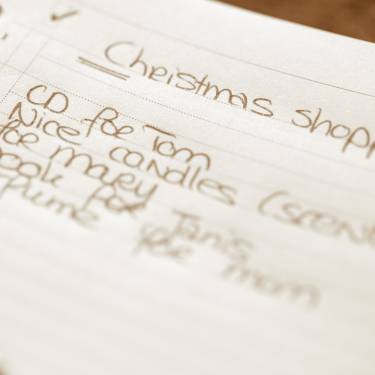 Christmas shopp
CD for Tom
Nice candles (scent
for mary
ook for Janis
fume for mom